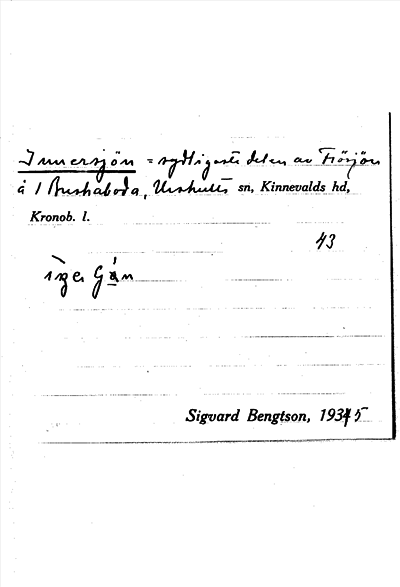 Innersjön = sydligaste delen av Fiösjön
å 1 Bushaboda, Urshults sn, Kinnevalds hd,
Kronob. l.
43
Sigvard Bengtson, 19345